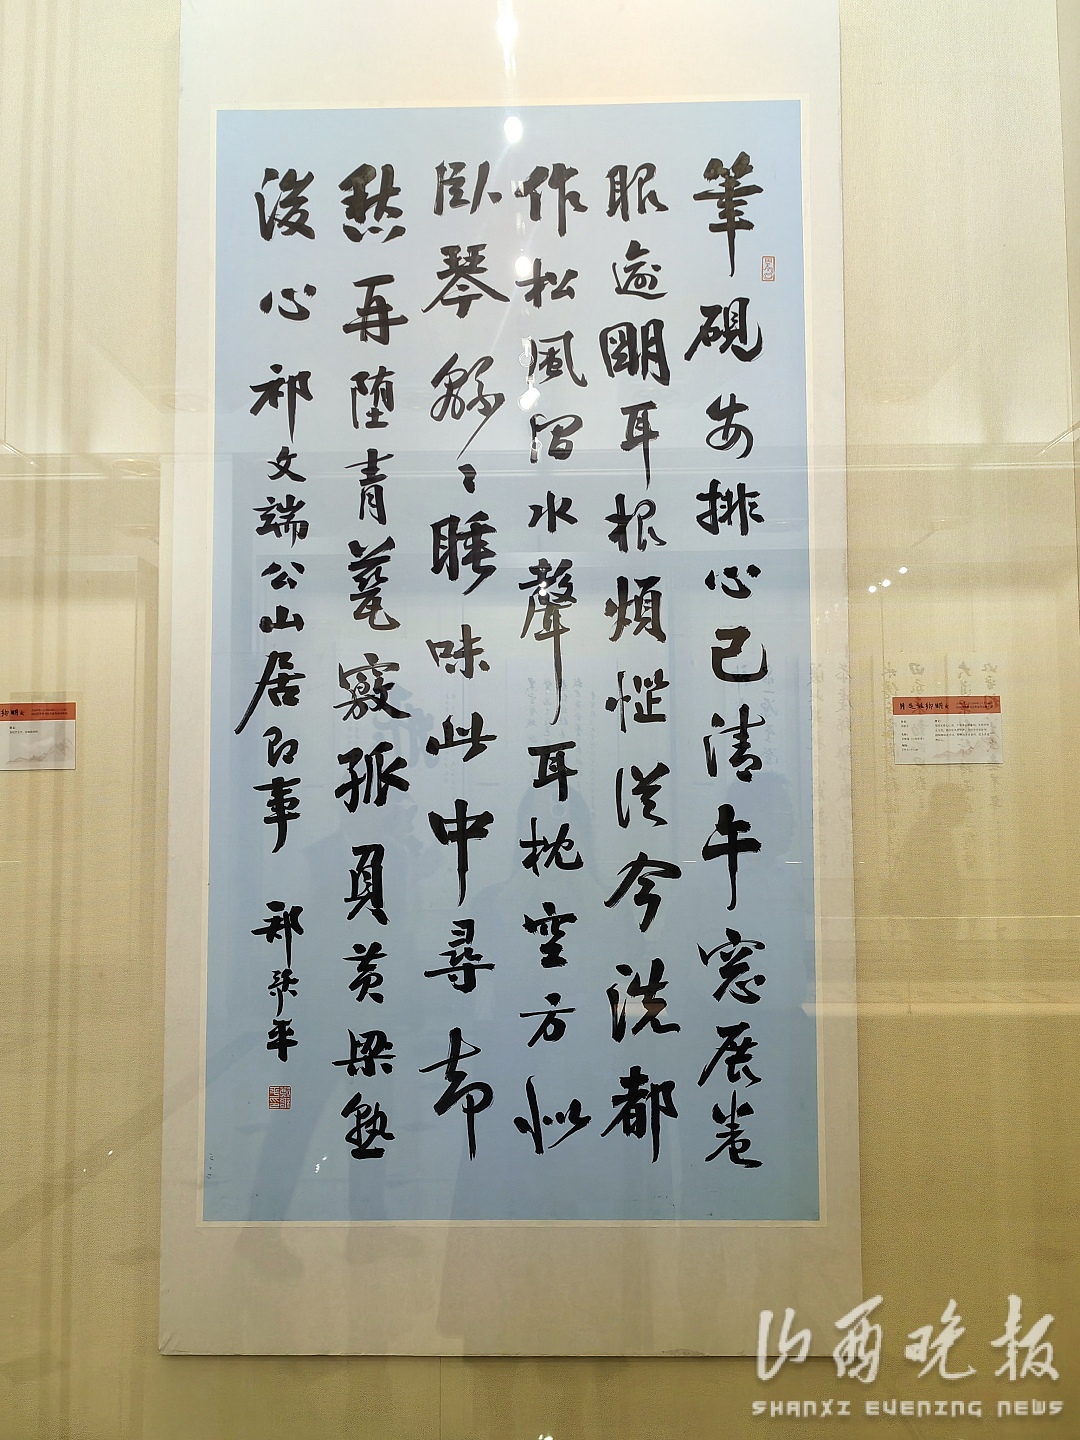 筆硯安排心已清午窓展卷
眼逾明耳根煩惱從今洗都
作松風澗水聲 耳枕空方似
臥琴 緜〻睡味此中尋 却
愁再堕青甆竅孤負黄梁熟
後心 祁文端公山居即事 郑 平
山西晚报
SHANXI EVENING NEWS